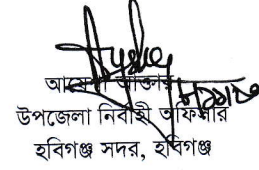 আয়েশা আক্তার
উপজেলা নির্বাহী অফিসার
হবিগঞ্জ সদর, হবিগঞ্জ